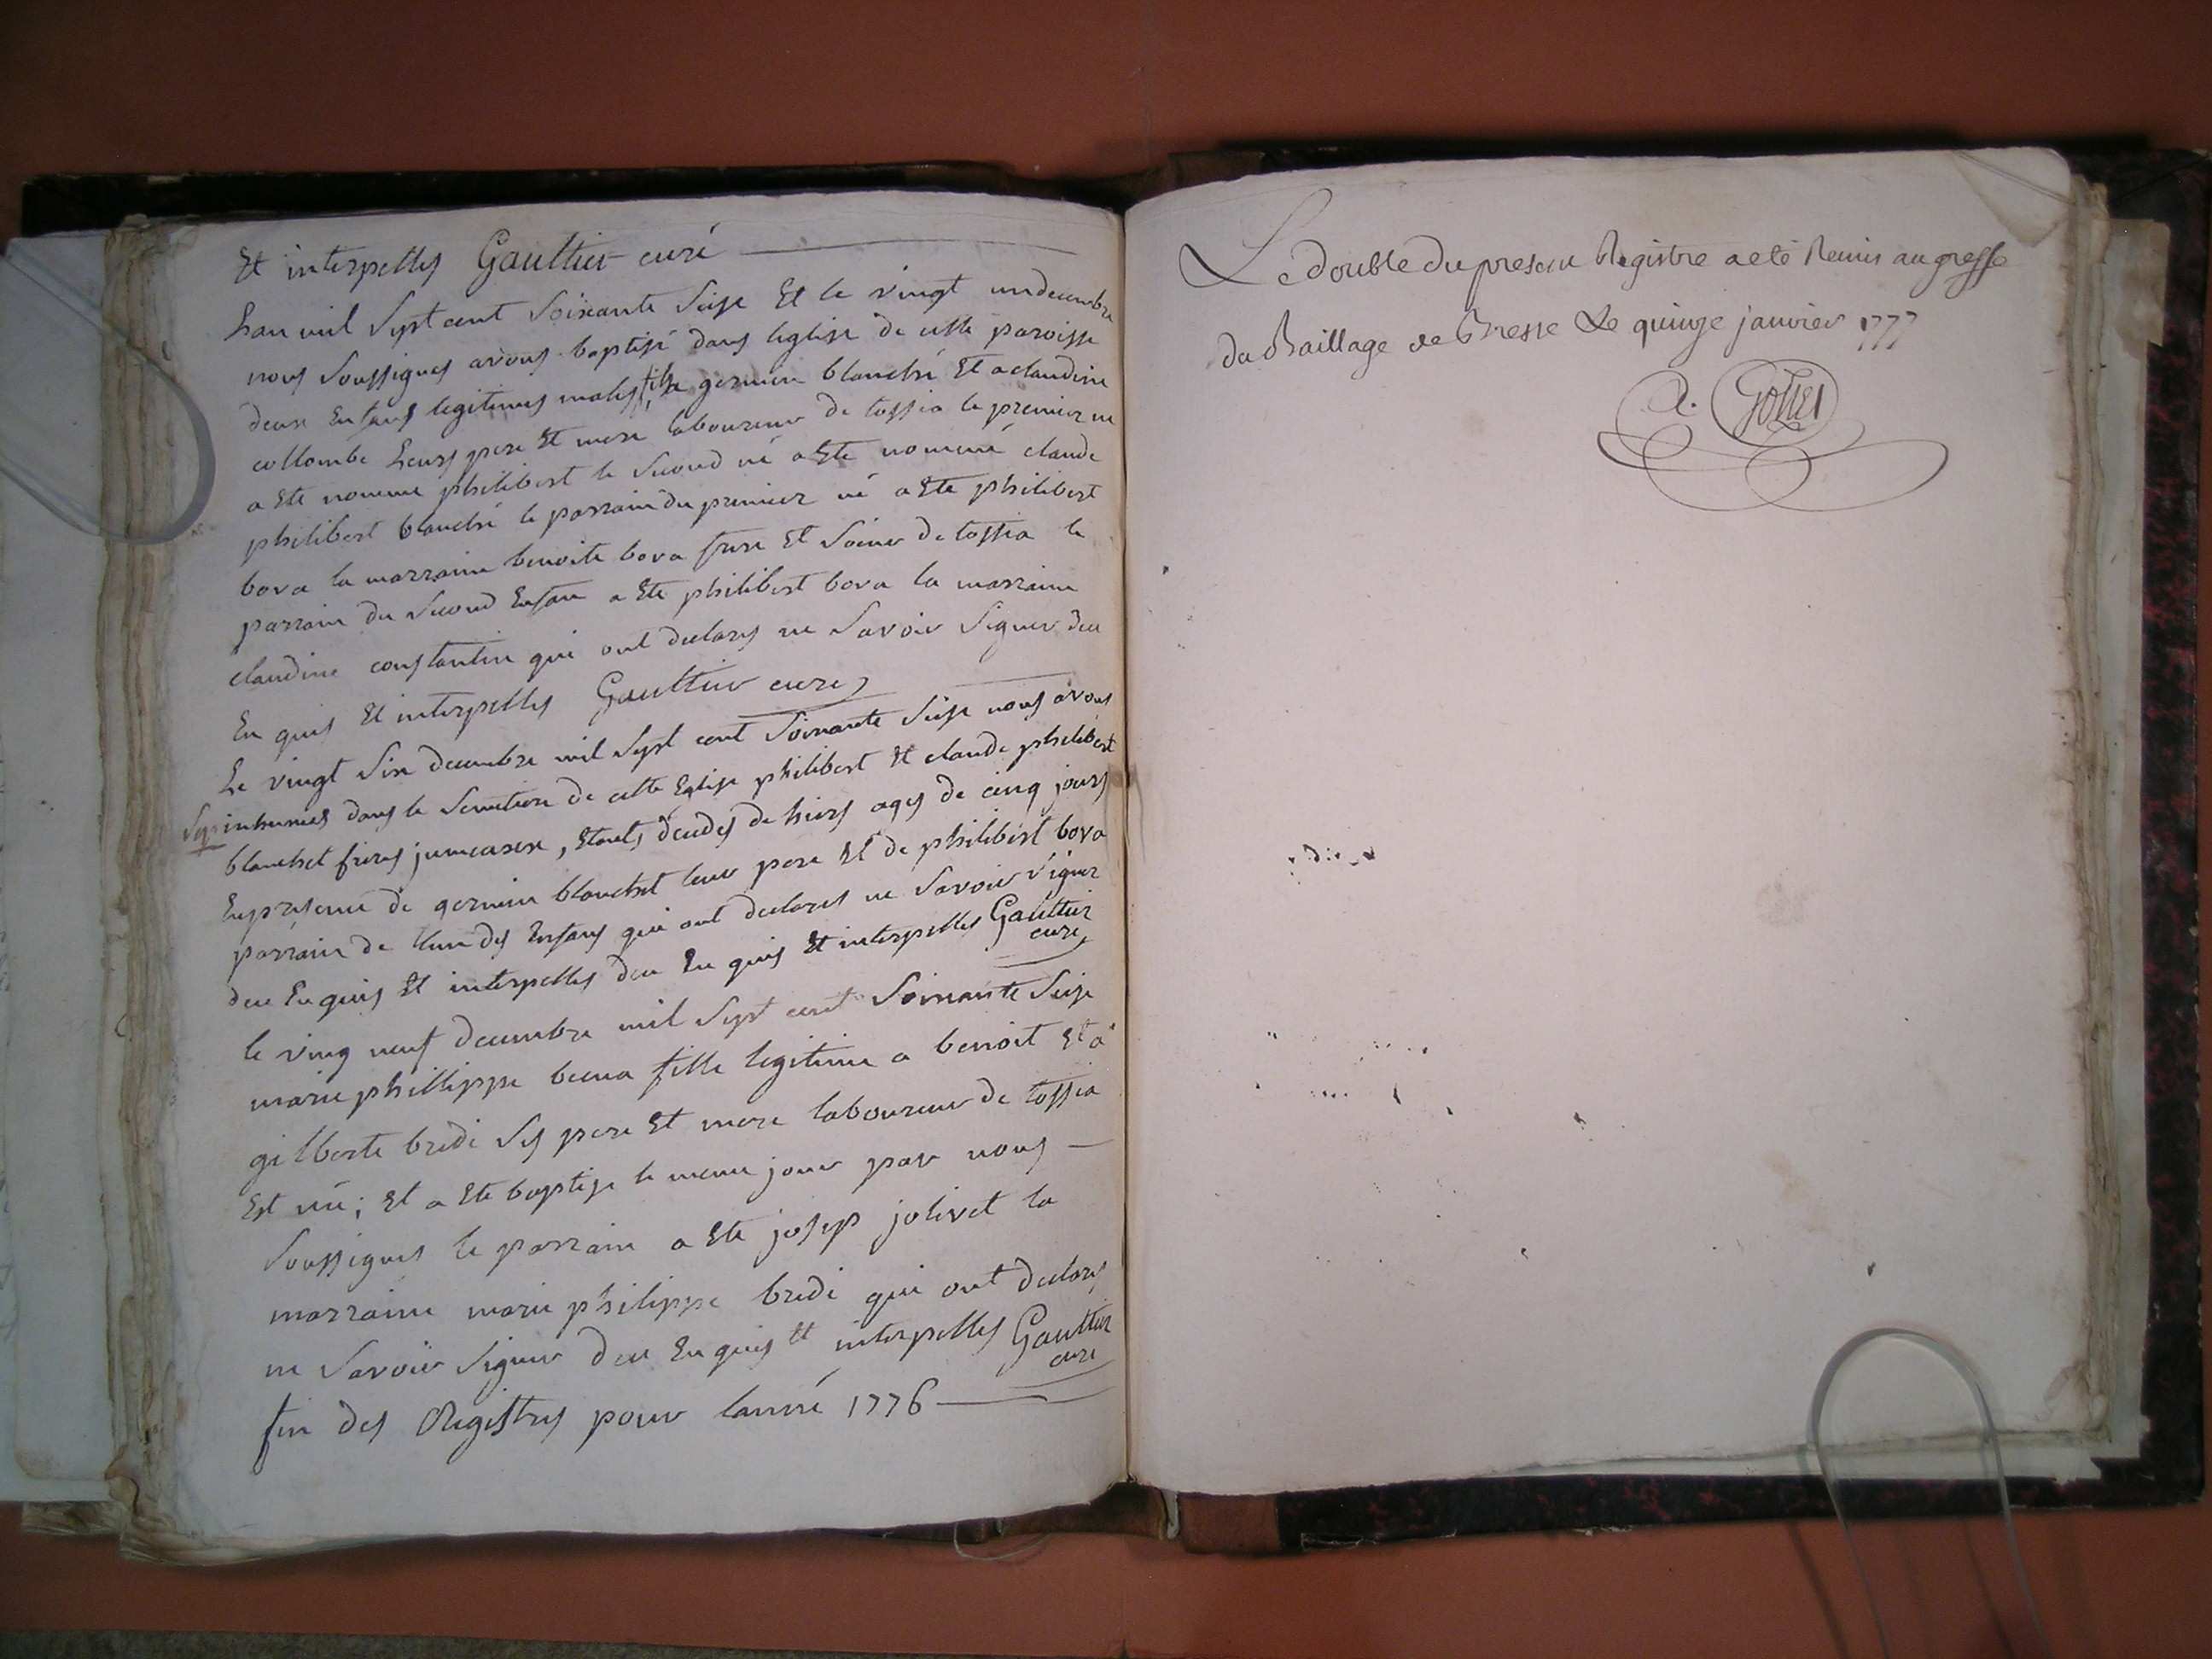 Et interpelles Gaultier curé
Lan mil Sept cent Soixante Seise Et le vingt un decembre
nous Soussignes avons baptisé dans leglise de cette paroisse
deux Enfans legitimes males fils a germain blanché Et a claudine
collombe Leurs pere Et mere laboureur de tossia le premier né
a Ete nommé philibert le Second né a Ete nommé claude
philibert blanché le parrain du premier né a Ete philibert
bova la marraine benoite bova frere Et Soeur de tossia le
parrain du Second Enfan a Ete philibert bova la marraine
claudine constantin qui ont declares ne Savoir Signer deu
En quis Et interpelles Gaultier curé
Le vingt Six decembre mil Sept cent Soixante Seise nous avons
Sep inhumes dans le Semetiere de cette Eglise philibert Et claude philibert
blanchet freres jumeaux, Etants decedes de hiers ages de cinq jours
En presence de germain blanchet leur pere Et de philibert bova
parrain de Llun des Enfans qui ont declares ne Savoir Signer
deu En quis Et interpelles deu En quis Et interpelles Gaultier
curé
le ving neuf decembre mil Sept cent Soixante Seise
marie phillippe fille legitime a benoit Et a
gilberte bredi Ses pere Et mere laboureur de tossia
Est né; Et a Ete baptise le meme jour par nous
Soussignes le parrain a Ete josep jolivet la
marraine marie philippe bredi qui ont declares
ne Savoir Signer deu En quis Et interpelles Gaultier
curé
fin des Registres pour lanné 1776
Le double du present Registre a eté Remis au greffe
du Baillage de Bresse Le quinze janvier 1777